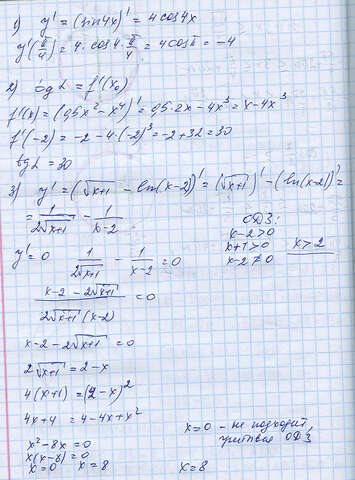 1) y' = (sin4x)' = 4cos4x
y'(π/4) = 4·cos4·π/4 = 4cosπ = -4
2) tgα = f'(x₀)
f'(x) = (0,5x² - x⁴)' = 0,5·2x - 4x³ = x - 4x³
f'(-2) = -2 - 4·(-2)³ = -2 + 32 = 30
tgα = 30
3) y' = (√x+1 - ln(x-2))' = (√x+1)' - (ln(x-2))' =
= 1/(2√x+1) - 1/(x-2)
ОДЗ:
x-2>0
x+1>0
x-2≠0
x>2
y' = 0 1/(2√x+1) - 1/(x-2) = 0
(x-2-2√x+1)/(2√x+1 (x-2)) = 0
x-2-2√x+1 = 0
2√x+1 = 2-x
4(x+1) = (2-x)²
4x+4 = 4-4x+x²
x²-8x=0
x(x-8)=0
x=0 x=8
x=0 - не подходит,
учитывая ОДЗ
x=8